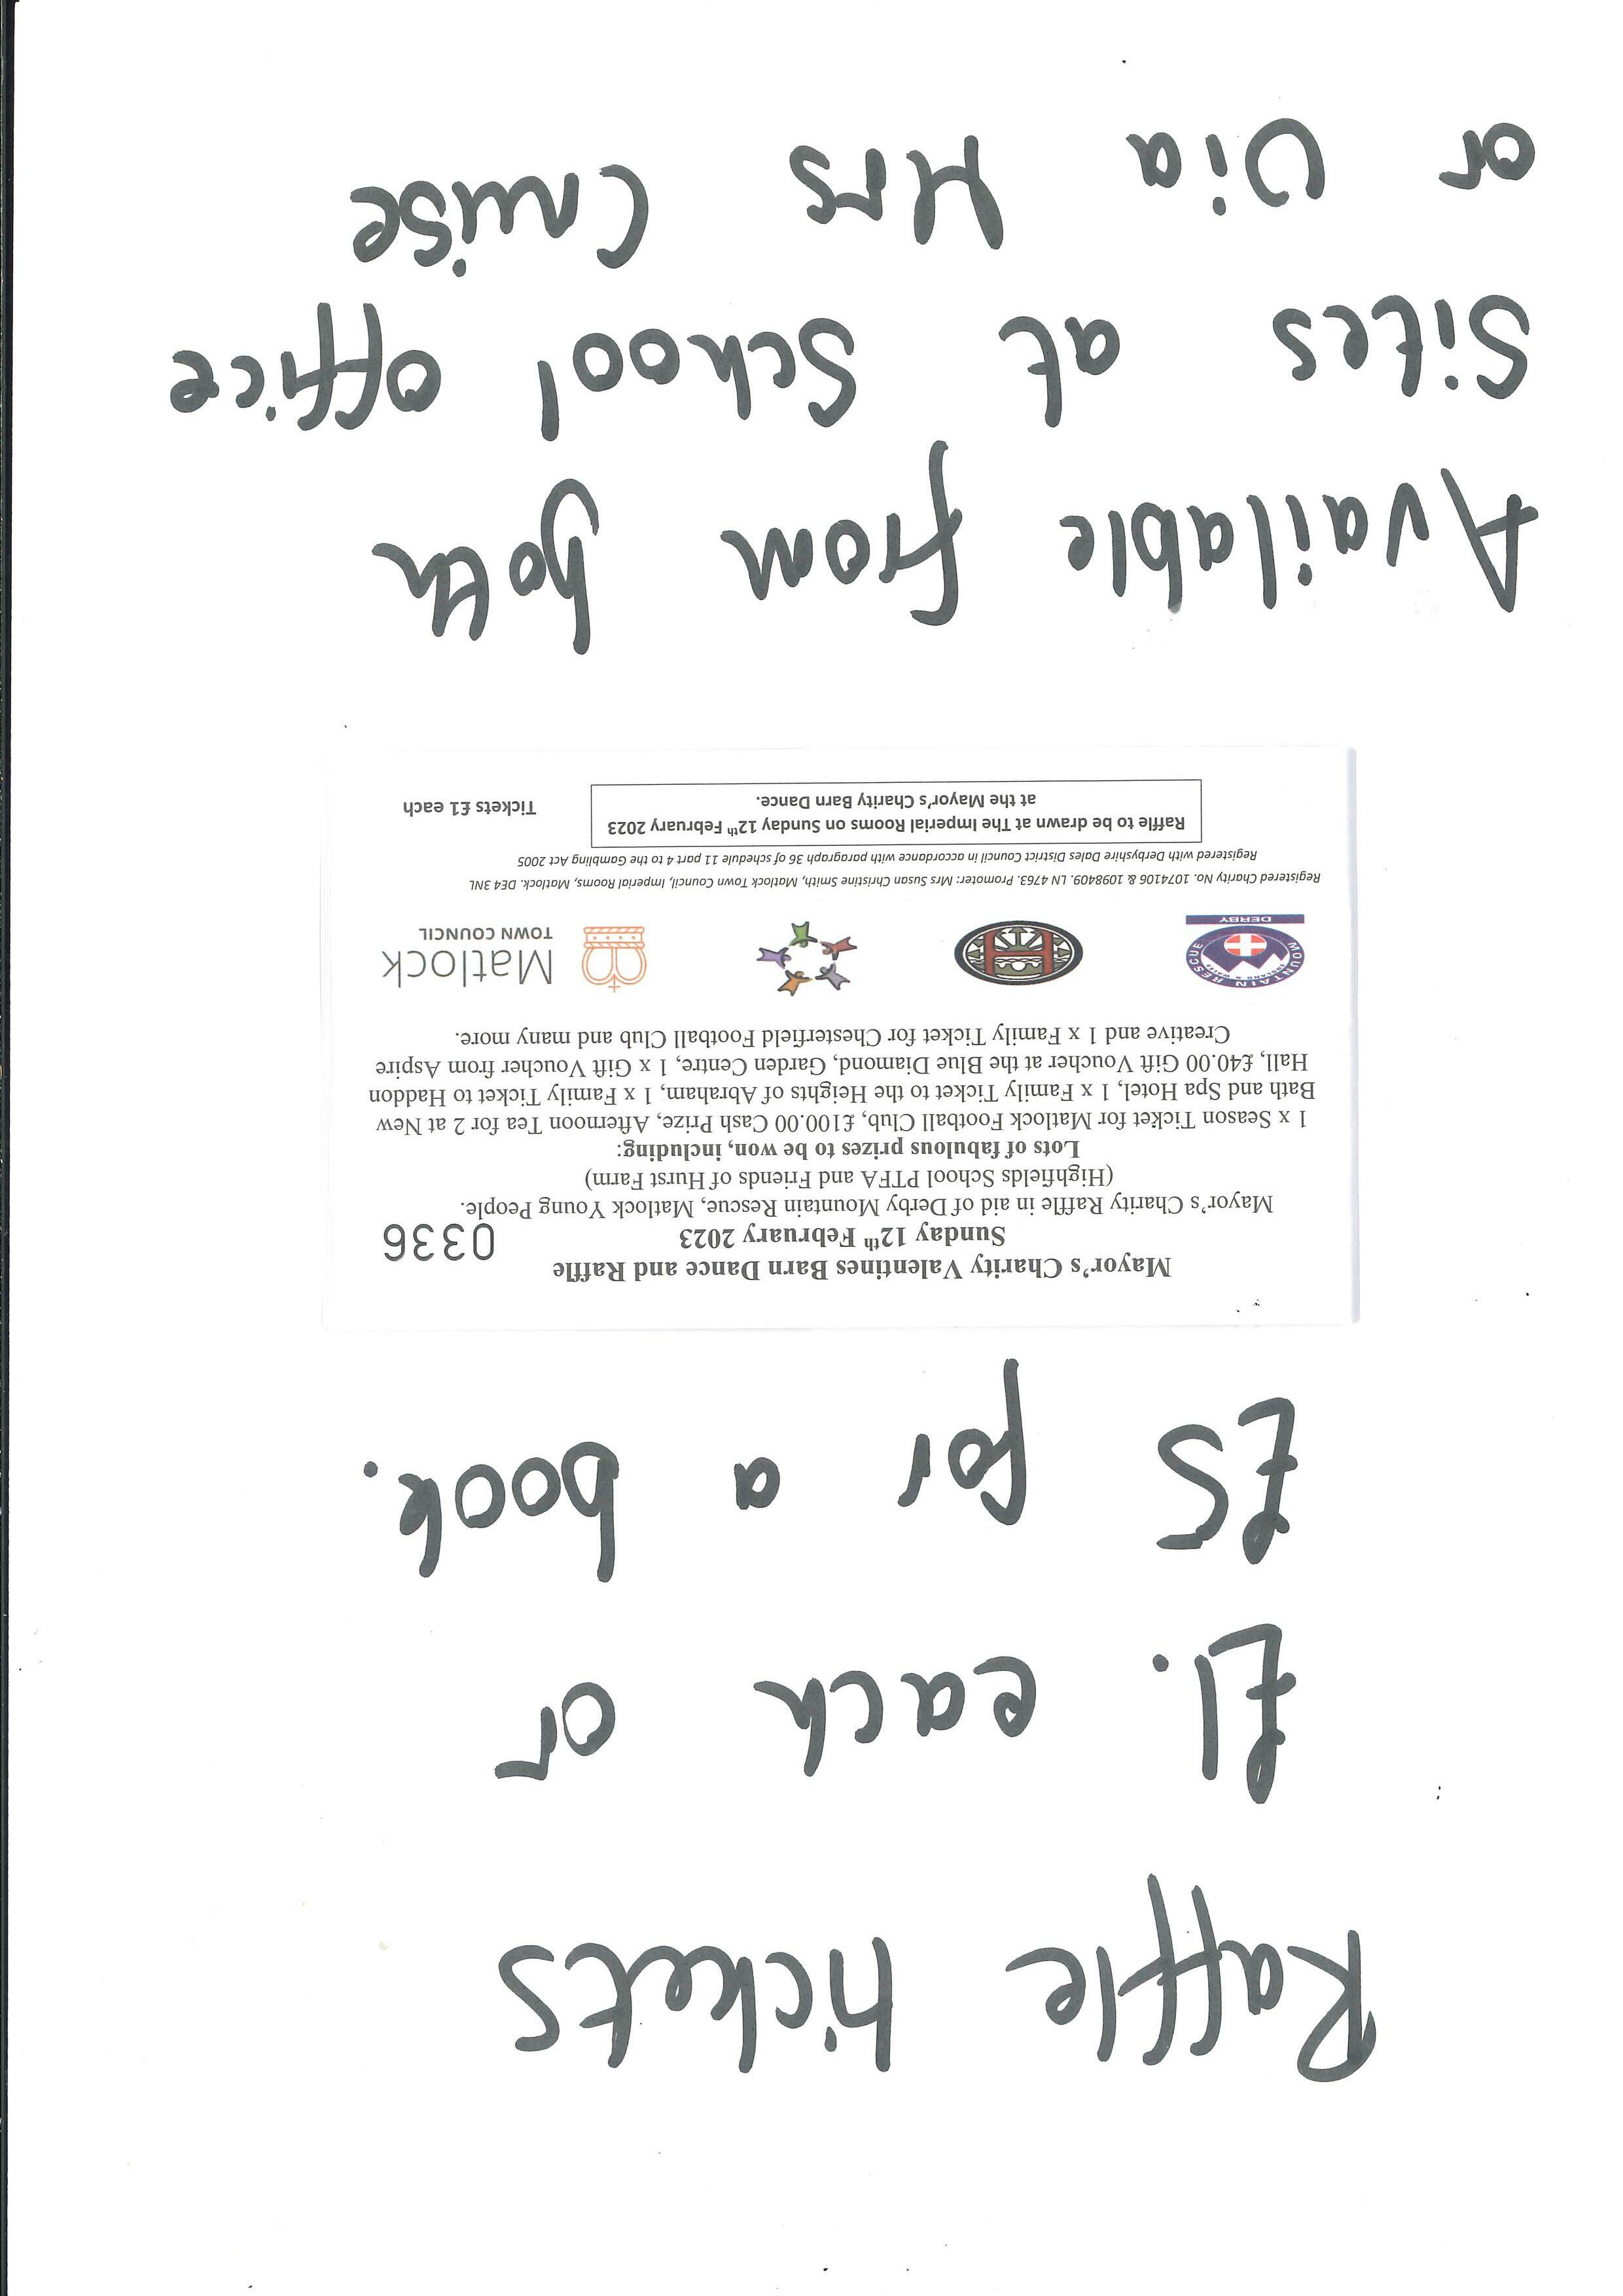 Raffle tickets
£1. each or
£5 for a book.
Mayor's Charity Valentines Barn Dance and Raffle
Sunday 12th February 2023
0336
Mayor's Charity Raffle in aid of Derby Mountain Rescue, Matlock Young People.
(Highfields School PTFA and Friends of Hurst Farm)
Lots of fabulous prizes to be won, including:
1 x Season Ticket for Matlock Football Club, £100.00 Cash Prize, Afternoon Tea for 2 at New
Bath and Spa Hotel, 1 x Family Ticket to the Heights of Abraham, 1 x Family Ticket to Haddon
Hall, £40.00 Gift Voucher at the Blue Diamond, Garden Centre, 1 x Gift Voucher from Aspire
Creative and 1 x Family Ticket for Chesterfield Football Club and many more.
MOUNTAIN RESCUE
ENGLAND & WALES
DERBY
H
Matlock
TOWN COUNCIL
Registered Charity No. 1074106 & 1098409. LN 4763. Promoter: Mrs Susan Christine Smith, Matlock Town Council, Imperial Rooms, Matlock. DE4 3NL
Registered with Derbyshire Dales District Council in accordance with paragraph 36 of schedule 11 part 4 to the Gambling Act 2005
Raffle to be drawn at The Imperial Rooms on Sunday 12th February 2023
at the Mayor's Charity Barn Dance.
Tickets £1 each
Available from both
Sites at School office
or Via Mrs Cruise